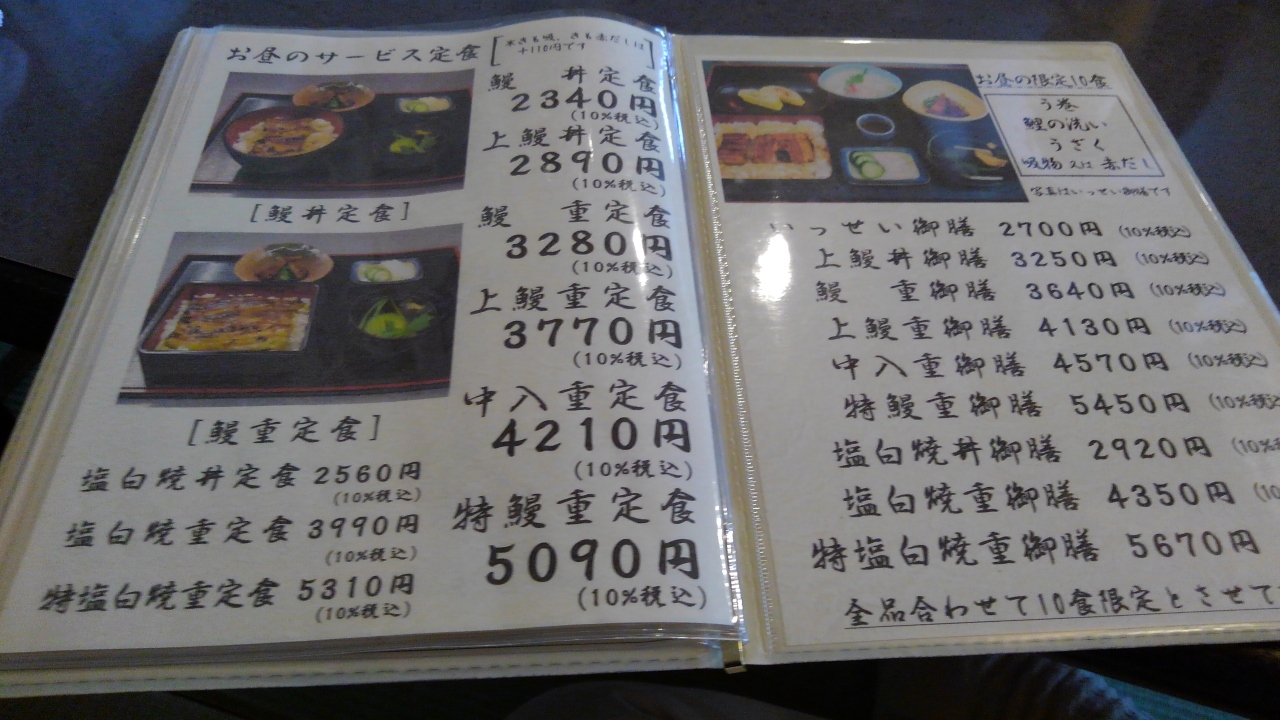 お昼のサービス定食
※きも吸、きも赤だしは
+110円です
鰻 丼定食
2340円
(10%税込)
上鰻丼定食
2890円
(10%税込)
[鰻丼定食]
鰻 重定食
3280円
(10%税込)
上鰻重定食
3770円
(10%税込)
中入重定食
4210円
(10%税込)
特鰻重定食
5090円
(10%税込)
[鰻重定食]
塩白焼丼定食 2560円
(10%税込)
塩白焼重定食 3990円
(10%税込)
特塩白焼重定食 5310円
(10%税込)
お昼の限定10食
う巻
鯉の洗い
うざく
吸物 又は 赤だし
写真はいっせい御膳です
いっせい御膳 2700円 (10%税込)
上鰻丼御膳 3250円 (10%税込)
鰻 重御膳 3640円 (10%税込)
上鰻重御膳 4130円 (10%税込)
中入重御膳 4570円 (10%税込)
特鰻重御膳 5450円 (10%税込
塩白焼丼御膳 2920円 (10%
塩白焼重御膳 4350円 (10
特塩白焼重御膳 5670円
全品合わせて10食限定とさせて